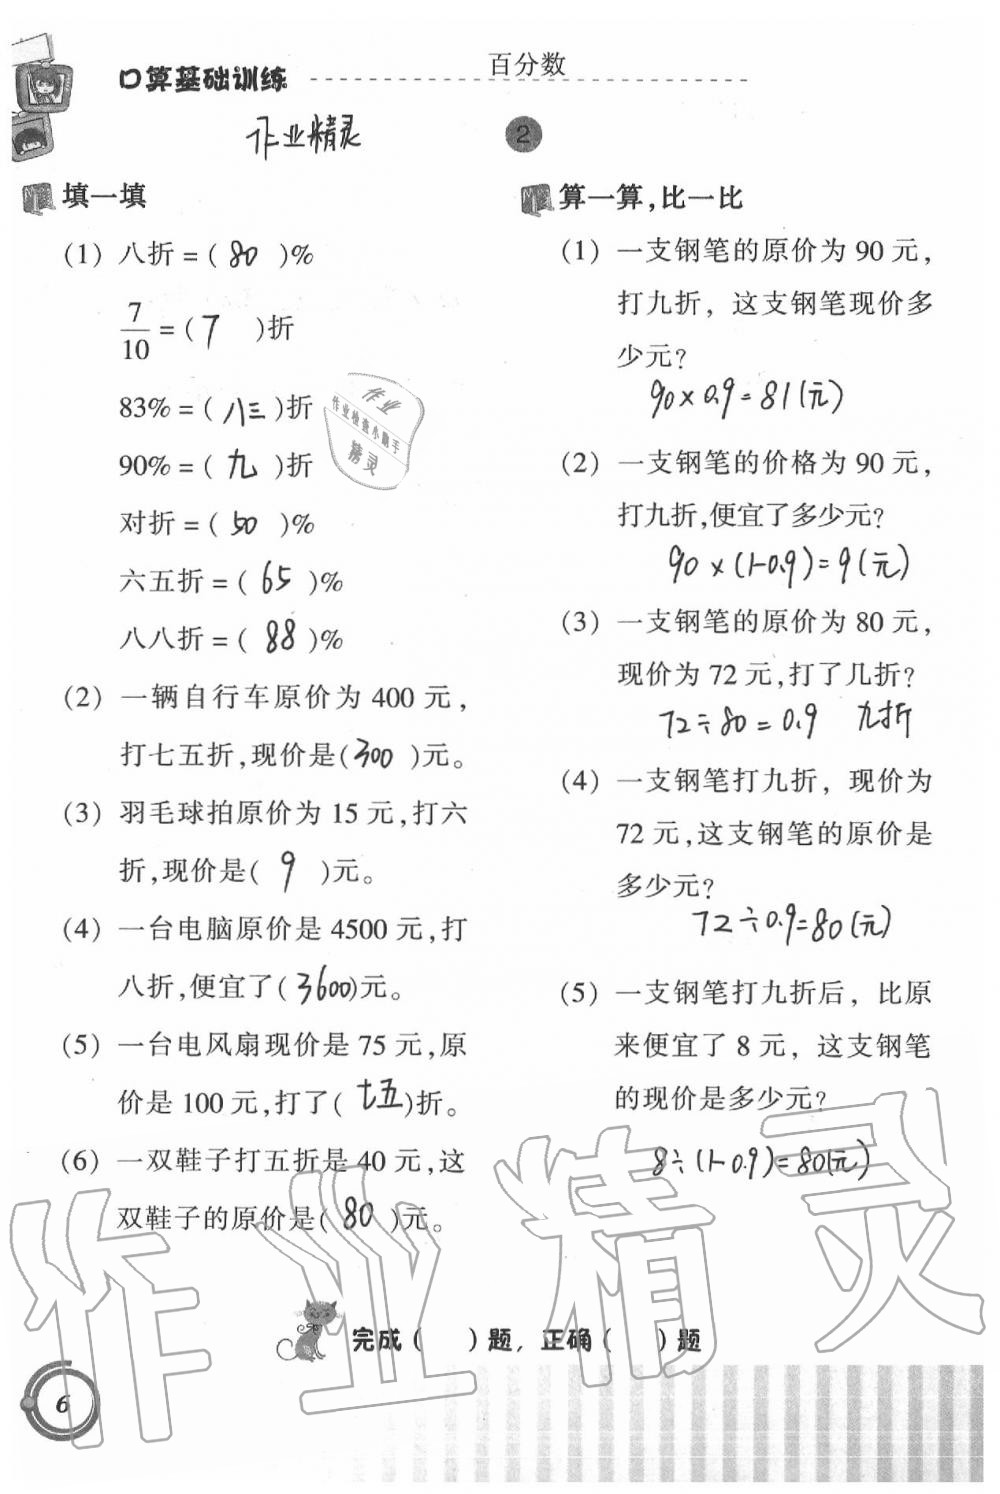 口算基础训练
百分数
作业精灵
2
填一填
(1) 八折=( 80 )%
7/10=( 7 )折
83%=( 八三 )折
90%=( 九 )折
对折=( 50 )%
六五折=( 65 )%
八八折=( 88 )%
(2) 一辆自行车原价为 400 元,
打七五折,现价是( 300 )元。
(3) 羽毛球拍原价为 15 元,打六
折,现价是( 9 )元。
(4) 一台电脑原价是 4500 元,打
八折,便宜了( 3600 )元。
(5) 一台电风扇现价是 75 元,原
价是 100 元,打了( 七五 )折。
(6) 一双鞋子打五折是 40 元,这
双鞋子的原价是( 80 )元。
算一算,比一比
(1) 一支钢笔的原价为 90 元,
打九折，这支钢笔现价多
少元?
90×0.9=81(元)
(2) 一支钢笔的价格为 90 元,
打九折,便宜了多少元?
90×(1-0.9)=9(元)
(3) 一支钢笔的原价为 80 元,
现价为 72 元,打了几折?
72÷80=0.9 九折
(4) 一支钢笔打九折，现价为
72 元,这支钢笔的原价是
多少元?
72÷0.9=80(元)
(5) 一支钢笔打九折后，比原
来便宜了 8 元，这支钢笔
的现价是多少元?
8÷(1-0.9)=80(元)
作业
作业检查小助手
精灵
作业精灵
完成(  )题, 正确(  )题
6